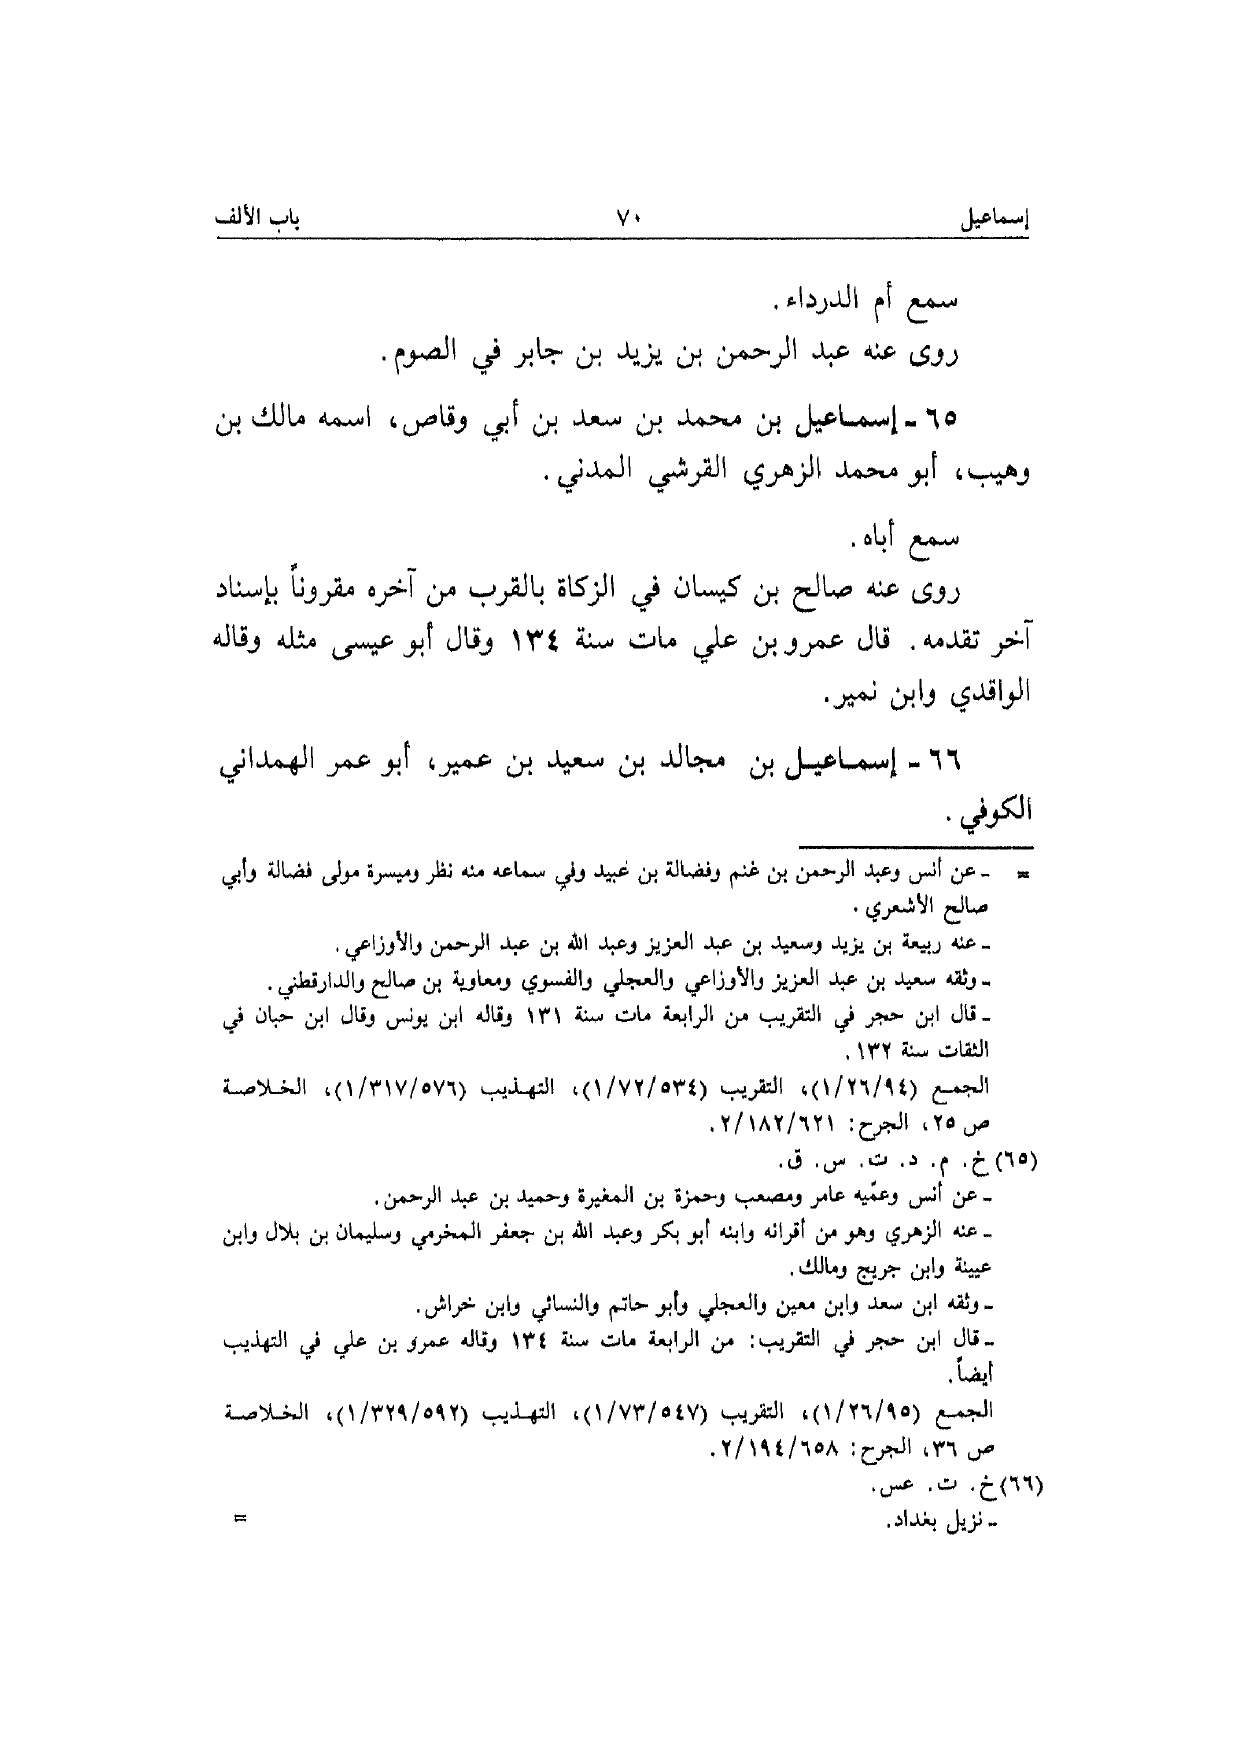 إسماعيل ٧٠ باب الألف
سمع أم الدرداء.
روى عنه عبد الرحمن بن يزيد بن جابر في الصوم.
٦٥ - إسماعيل بن محمد بن سعد بن أبي وقاص، اسمه مالك بن
وهيب، أبو محمد الزهري القرشي المدني.
سمع أباه.
روى عنه صالح بن كيسان في الزكاة بالقرب من آخره مقروناً بإسناد
آخر تقدمه. قال عمرو بن علي مات سنة ١٣٤ وقال أبو عيسى مثله وقاله
الواقدي وابن نمير.
٦٦ - إسماعيل بن مجالد بن سعيد بن عمير، أبو عمر الهمداني
الكوفي.
= - عن أنس وعبد الرحمن بن غنم وفضالة بن عبيد وفي سماعه منه نظر وميسرة مولى فضالة وأبي
صالح الأشعري.
- عنه ربيعة بن يزيد وسعيد بن عبد العزيز وعبد الله بن عبد الرحمن والأوزاعي.
- وثقه سعيد بن عبد العزيز والأوزاعي والعجلي والفسوي ومعاوية بن صالح والدارقطني.
- قال ابن حجر في التقريب من الرابعة مات سنة ١٣١ وقاله ابن يونس وقال ابن حبان في
الثقات سنة ١٣٢.
الجمع (١/٢٦/٩٤)، التقريب (١/٧٢/٥٣٤)، التهذيب (١/٣١٧/٥٧٦)، الخلاصة
ص ٢٥، الجرح: ٢/١٨٢/٦٢١.
(٦٥) خ. م. د. ت. س. ق.
- عن أنس وعمّيه عامر ومصعب وحمزة بن المغيرة وحميد بن عبد الرحمن.
- عنه الزهري وهو من أقرانه وابنه أبو بكر وعبد الله بن جعفر المخرمي وسليمان بن بلال وابن
عيينة وابن جريج ومالك.
- وثقه ابن سعد وابن معين والعجلي وأبو حاتم والنسائي وابن خراش.
- قال ابن حجر في التقريب: من الرابعة مات سنة ١٣٤ وقاله عمرو بن علي في التهذيب
أيضاً.
الجمع (١/٢٦/٩٥)، التقريب (١/٧٣/٥٤٧)، التهذيب (١/٣٢٩/٥٩٢)، الخلاصة
ص ٣٦، الجرح: ٢/١٩٤/٦٥٨.
(٦٦) خ. ت. عس.
- نزيل بغداد. =